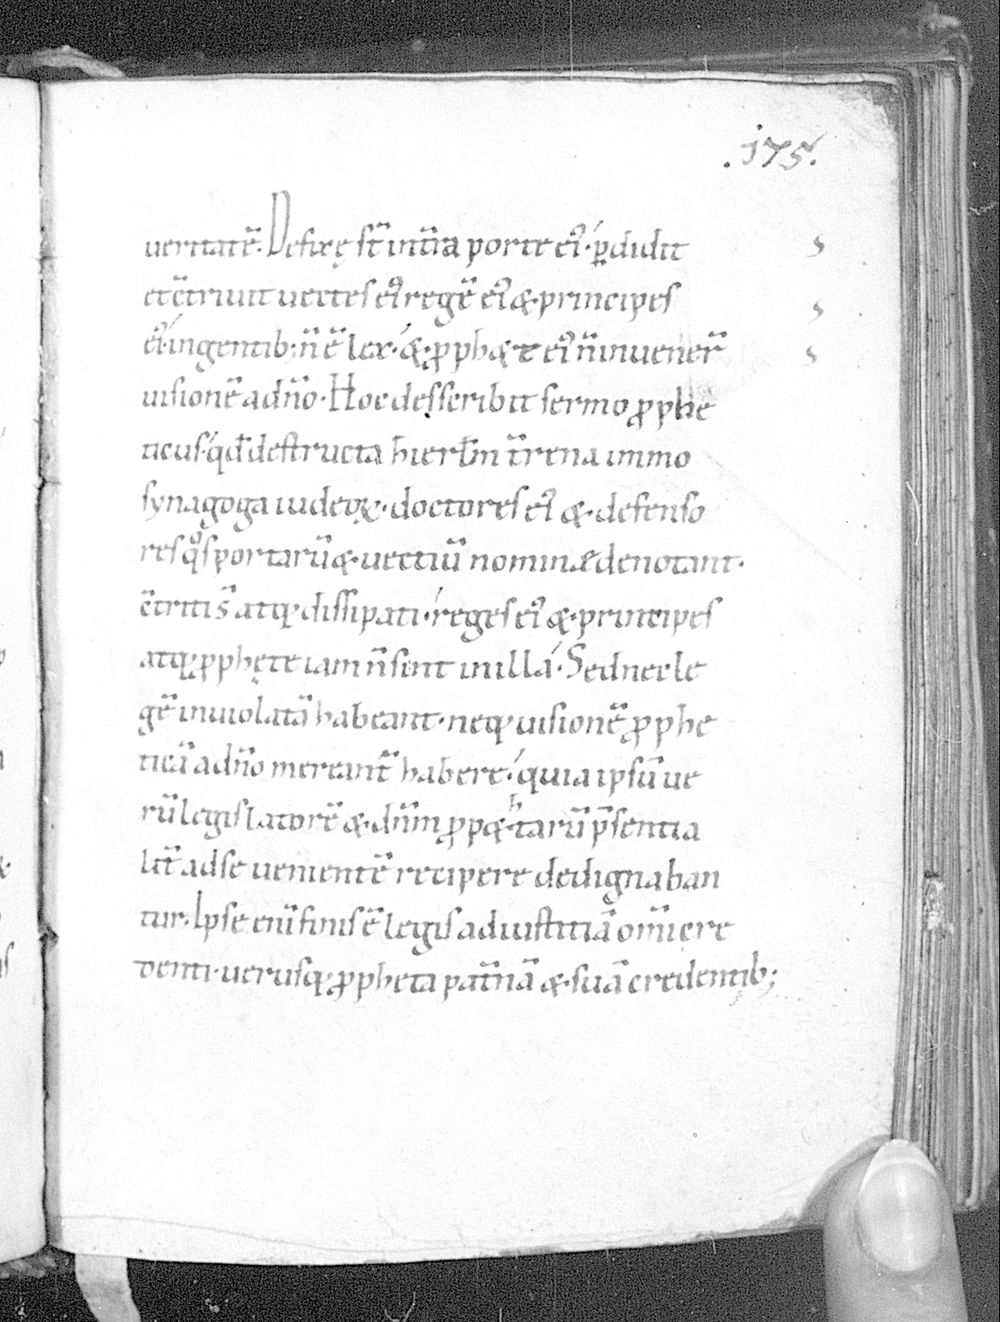 .175.
ueritatē. Defixę st̄ int̄ra porte ei᷒· ꝑdidit
et c̄triuit uectes ei᷒ regē ei᷒ & principes
ei᷒ in gentib: n̄ ē lex· &· ꝓph&ę ei᷒ n̄ inuener̄
uisionē a dn̄o· Hoc desscribit sermo ꝓphe
ticus· qd̄ destructa hierl̄m t̄rena immo
synagoga iudeoꝝ· doctores ei᷒ &· defenso
res qͦs portarū & uectiū nomina denotant·
c̄triti s̄ atq; dissipati· reges ei᷒ &· principes
atq; ꝓphęte iam n̄ sunt in illa· Sed nec le
gē inuiolatā habeant· neq; uisionē ꝓphe
ticā a dn̄o mereant̄ habere· quia ipsū ue
rū legislatorē &· dn̄m ꝓp&tarū p̄sentia
lit̄ ad se uenientē recipere dedignaban
tur· Ipse eni finis ē legis ad iustitiā omi cre
denti· uerusq; ꝓpheta pat̄nā & suā credentib;